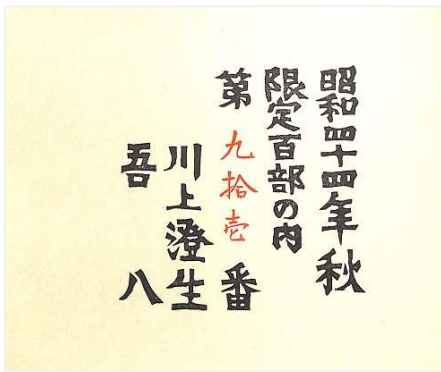 昭和四十四年秋
限定百部の内
第九拾壱番
川上澄生
吾八